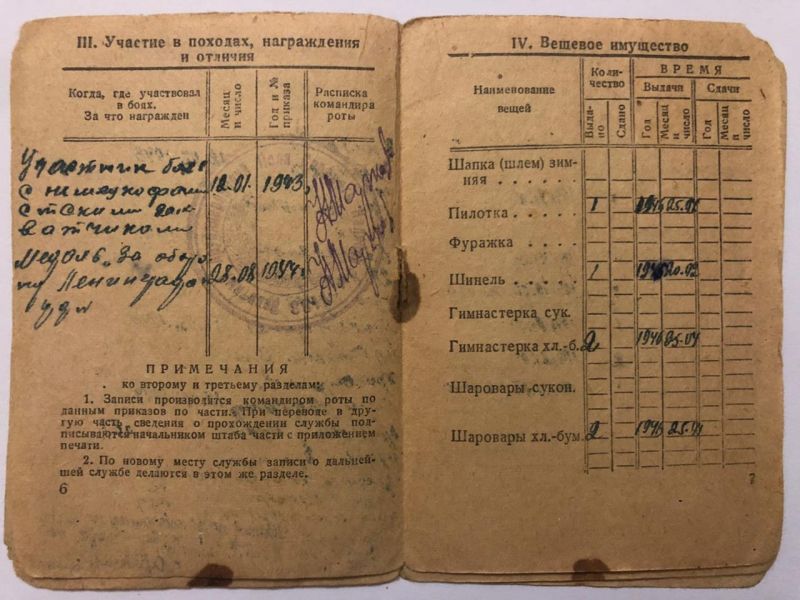 III. Участие в походах, награждения
и отличия
Когда, где участвовал
в боях.
За что награжден
Месяц
и число
Год и №
приказа
Расписка
командира
роты
Участник боев
с немецкофаши
стскими зах
ватчиками
12.01.
1943
Медаль „За оборо
ну Ленинграда"
28.08
1944.
ПРИМЕЧАНИЯ
ко второму и третьему разделам:
1. Записи производятся командиром роты по
данным приказов по части. При переводе в дру-
гую часть сведения о прохождении службы под-
писываются начальником штаба части с приложением
печати.
2. По новому месту службы записи о дальней-
шей службе делаются в этом же разделе.
6
IV. Вещевое имущество
Наименование
вещей
Коли-
чество
ВРЕМЯ
Выдачи
Сдачи
Выда-
но
Сдано
Год
Месяц
и
число
Год
Месяц
и
число
Шапка (шлем) зим-
няя . . . . . .
Пилотка . . . . . 1 1946
Фуражка . . . . .
Шинель . . . . . 1 1946 20.02
Гимнастерка сук.
Гимнастерка хл.-б. 2 1946 25.04
Шаровары сукон.
Шаровары хл.-бум. 2 1946 25.04
7